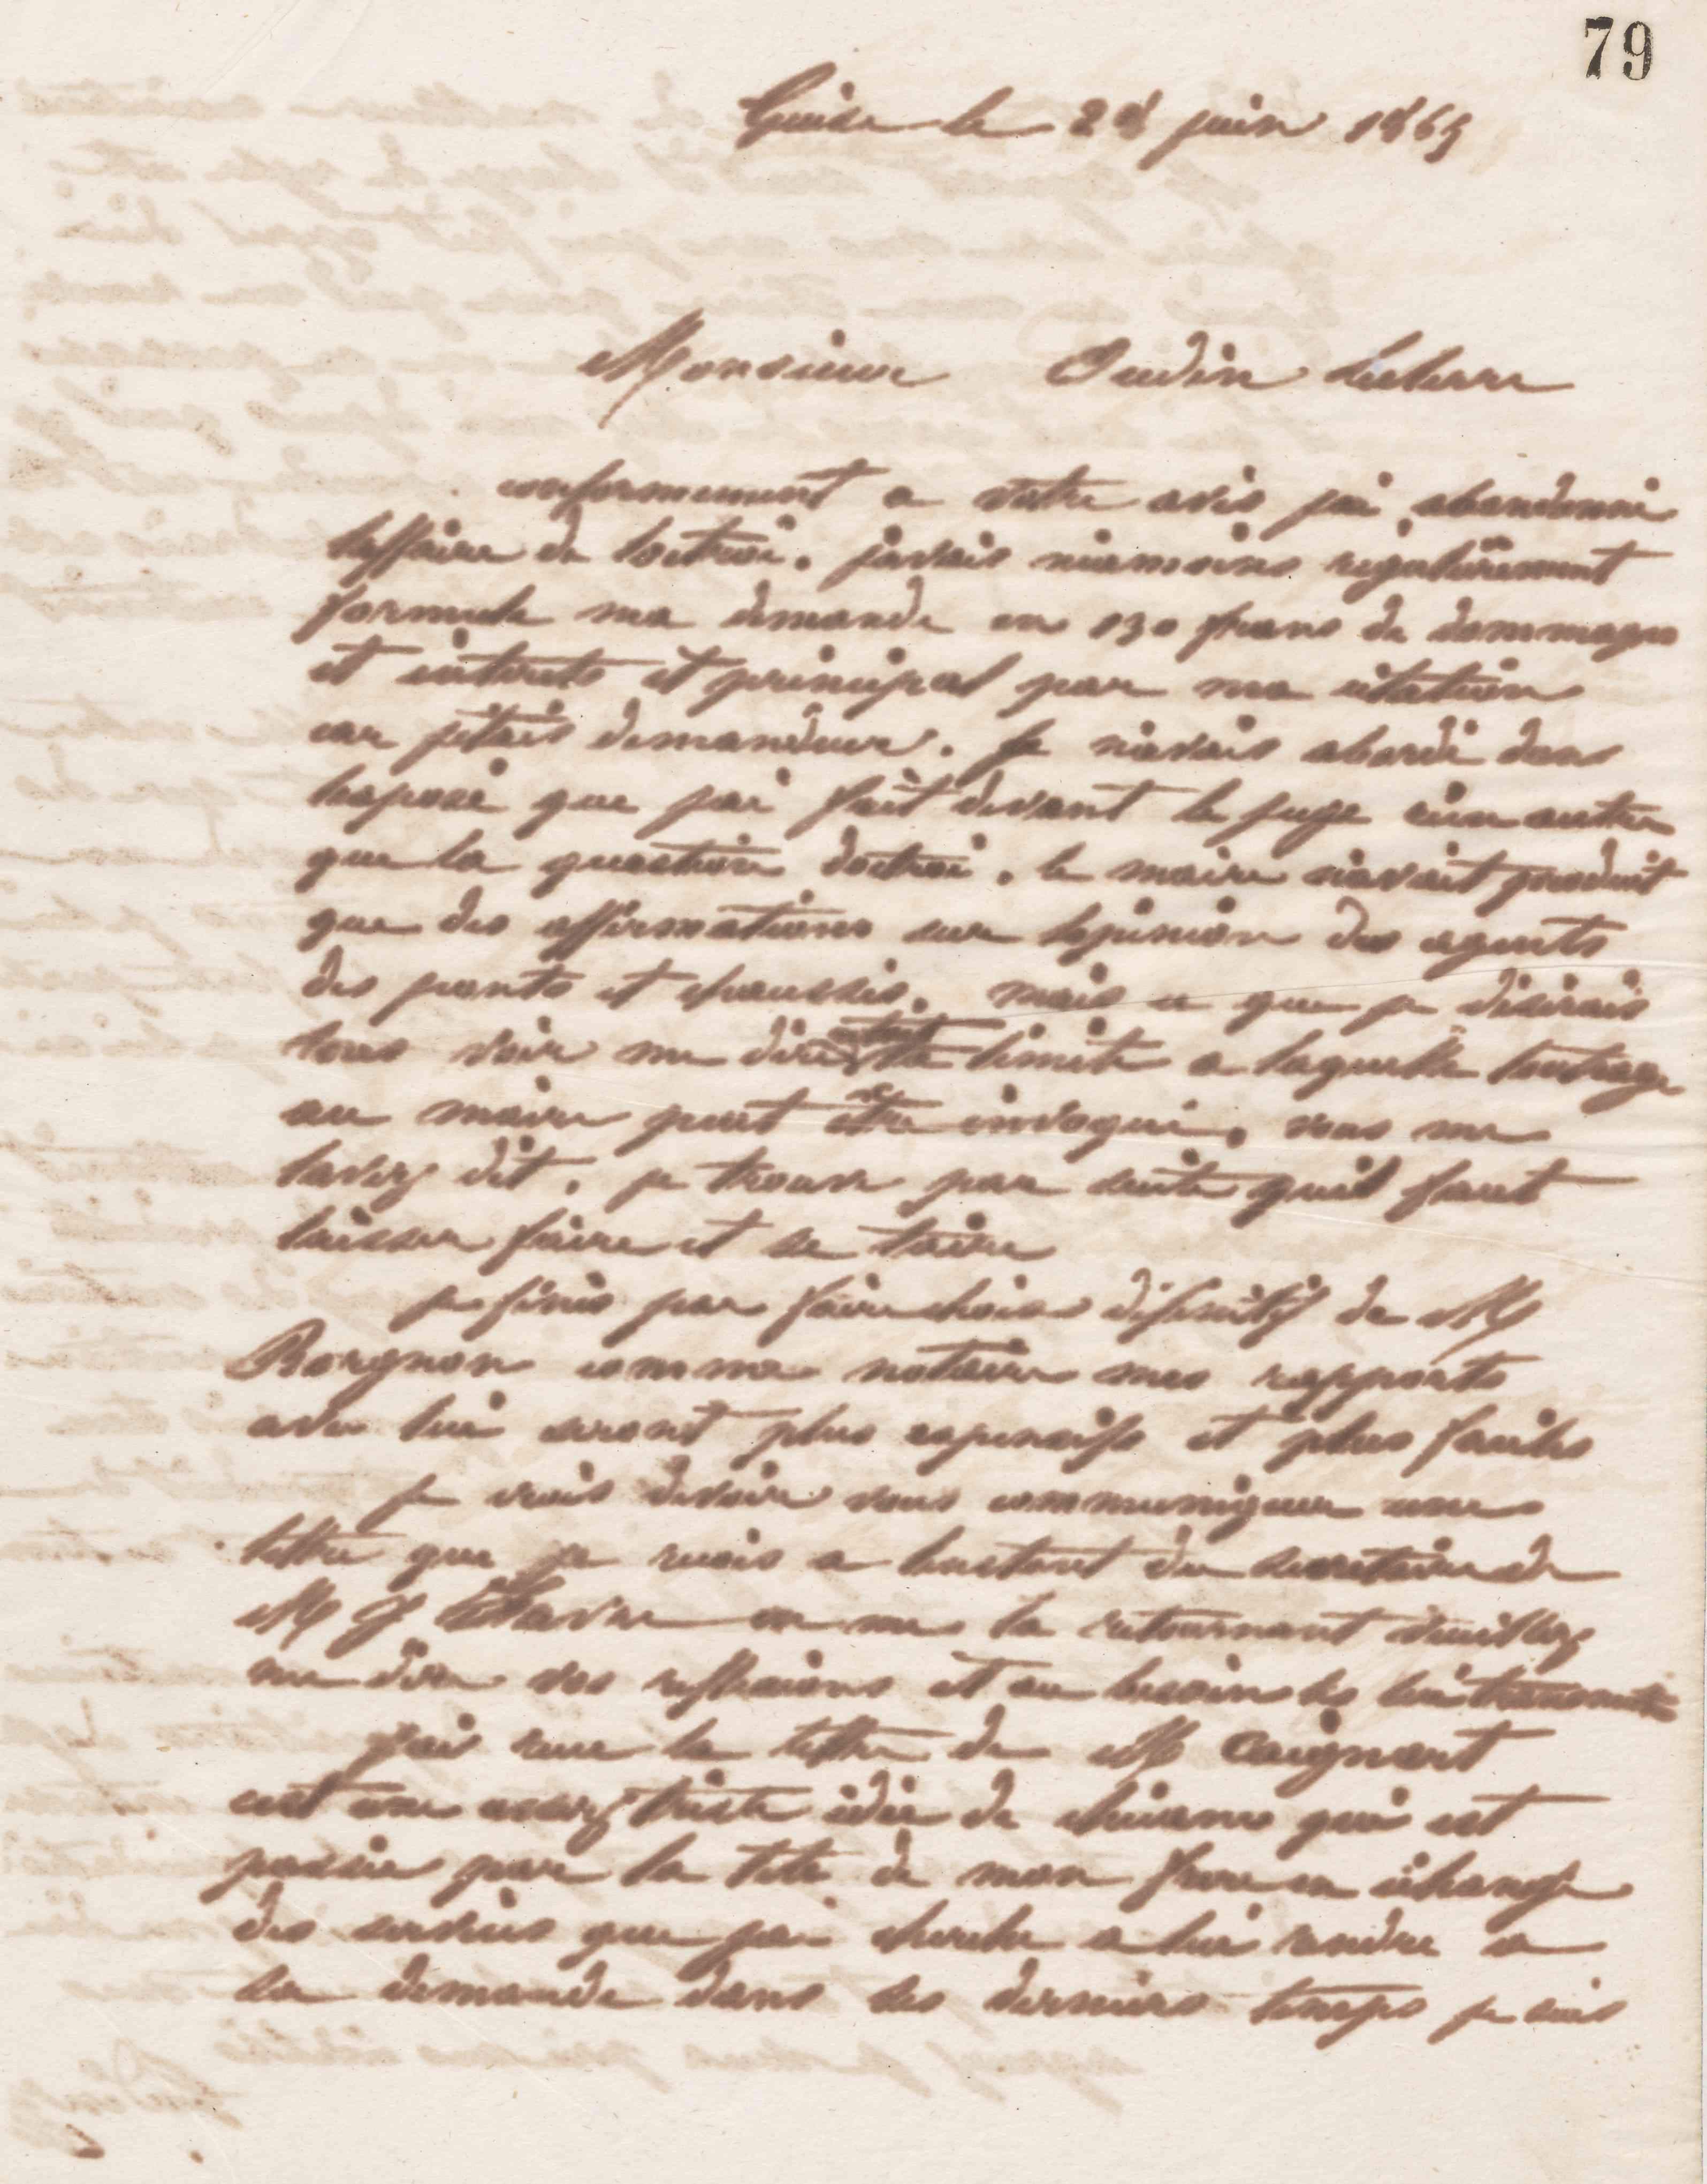 79
Guise le 28 juin 1865
Monsieur Oudin Leclerre
conformement a votre avis jai abandonné
laffaire de loctroi. javais néamoins régulièrement
formulé ma demande en 130 frans de dommages
et intérets et principal par ma citation
car jétais demandeur. Je navais abordé dans
lexposé que jai fait devant le juge rien autre
que la question doctroi. le maire navait produit
que des affirmations sur lopinion des agents
des ponts et chaussés. mais ce que je désirais
vous voir me dire la limite a laquelle loutrage
au maire peut être invoqué. vous me
lavez dit. je trouve par suite quil faut
laisser faire et se taire
je finis par faire choix définitif de M
Borgnon comme notaire mes rapports
avec lui seront plus expensifs et plus faciles
je crois devoir vous communiquer une
lettre que je recois a linstant du secretaire de
M J Favre en me la retournant veuillez
me dire vos reflexions et au besoin les lui transmettre
jai recu la lettre de M Caignart
cest une assez triste idée de chicane qui est
passée par la tête de mon frere en échange
des services que jai cherché a lui rendre a
sa demande dans ses derniers temps je suis